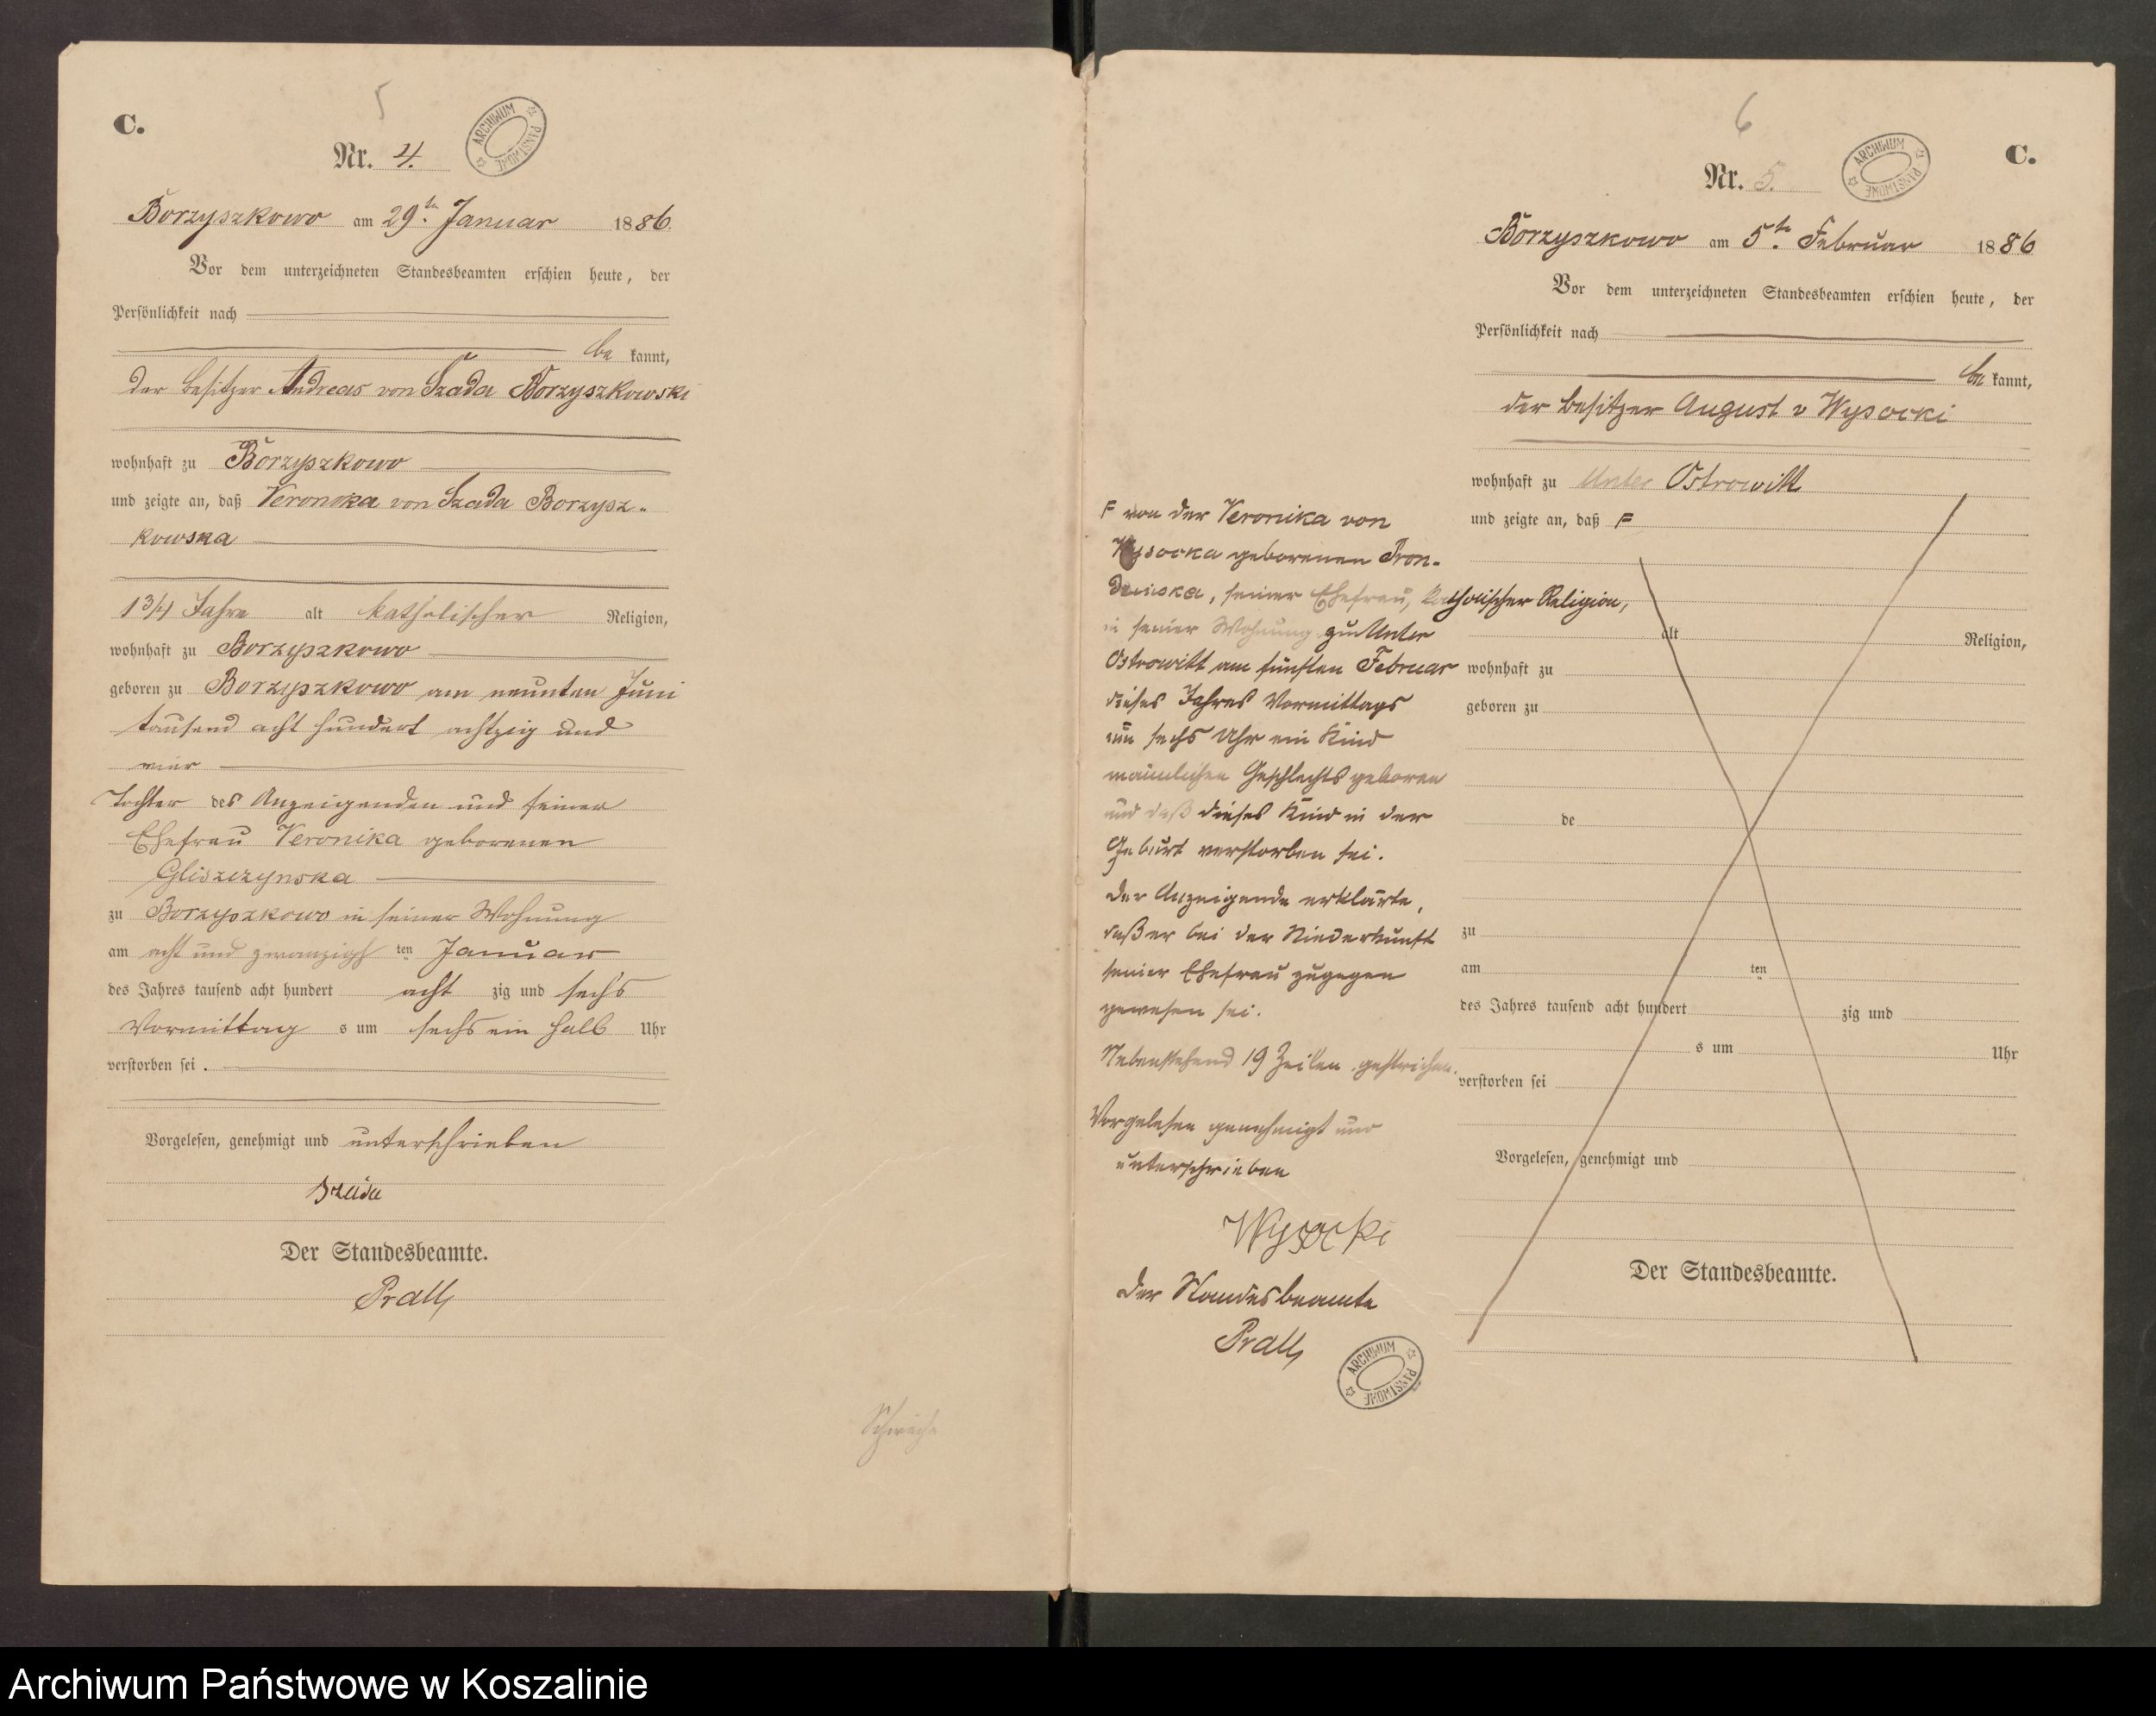 5
C.
Nr. 4.
ARCHIWUM PAŃSTWOWE
Borzyszkowo am 29ten Januar 1886.
Vor dem unterzeichneten Standesbeamten erschien heute, der
Persönlichkeit nach
be kannt,
der Besitzer Andreas von Szada Borzyszkowski
wohnhaft zu Borzyszkowo
und zeigte an, daß Veronika von Szada Borzysz-
kowska
1 3/4 Jahre alt katholischer Religion,
wohnhaft zu Borzyszkowo
geboren zu Borzyszkowo am neunten Juni
tausend acht hundert achtzig und
vier
Tochter des Anzeigenden und seiner
Ehefrau Veronika geborenen
Gliszczynska
zu Borzyszkowo in seiner Wohnung
am acht und zwanzigsten Januar
des Jahres tausend acht hundert acht zig und sechs
Vormittag s um sechs ein halb Uhr
verstorben sei.
Vorgelesen, genehmigt und unterschrieben
Szada
Der Standesbeamte.
Prall
6
C.
Nr. 5.
ARCHIWUM PAŃSTWOWE
Borzyszkowo am 5ten Februar 1886
Vor dem unterzeichneten Standesbeamten erschien heute, der
Persönlichkeit nach
be kannt,
der Besitzer August v Wysocki
wohnhaft zu Unter Ostrowitt
und zeigte an, daß F
alt Religion,
wohnhaft zu
geboren zu
de
zu
am ten
des Jahres tausend acht hundert zig und
s um Uhr
verstorben sei
Vorgelesen, genehmigt und
Der Standesbeamte.
F von der Veronika von
Wysocka geborenen
seiner Ehefrau, katholischer Religion,
in seiner Wohnung zu Unter
Ostrowitt am fünften Februar
dieses Jahres Vormittags
um sechs Uhr ein Kind
männlichen Geschlechts geboren
und daß dieses Kind in der
Geburt verstorben sei.
Der Anzeigende erklärte,
daß er bei der Niederkunft
seiner Ehefrau zugegen
gewesen sei.
Nebenstehend 19 Zeilen gestrichen.
Vorgelesen genehmigt und
unterschrieben
Wysocki
Der Standesbeamte
Prall
ARCHIWUM PAŃSTWOWE
Archiwum Państwowe w Koszalinie